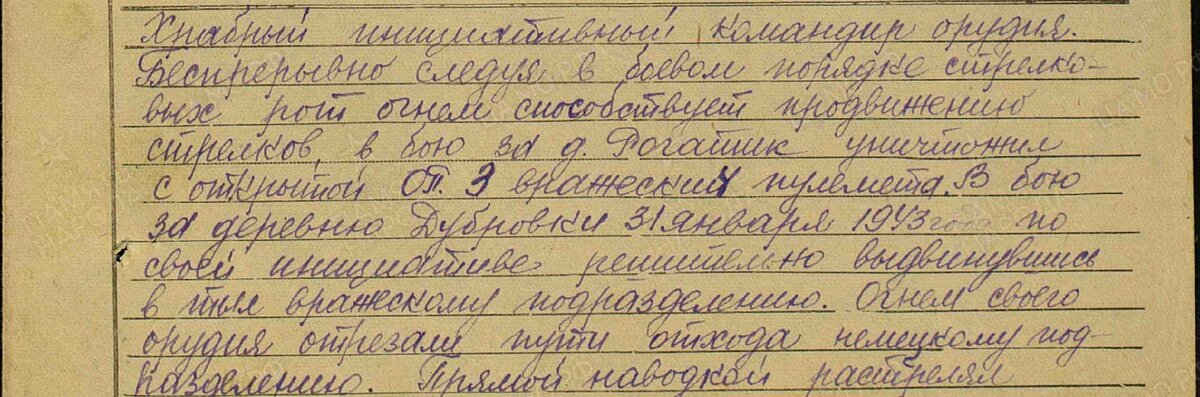 Храбрый инициативный командир орудия.
Беспрерывно следуя в боевом порядке стрелко-
вых рот огнем способствует продвижению
стрелков, в бою за д. Рогатик уничтожил
с открытой ОП. 3 вражеский пулемета. В бою
за деревню Дубровки 31 января 1943 года по
своей инициативе решительно выдвинувшись
в тыл вражескому подразделению. Огнем своего
орудия отрезали пути отхода немецкому под-
разделению. Прямой наводкой растрелял